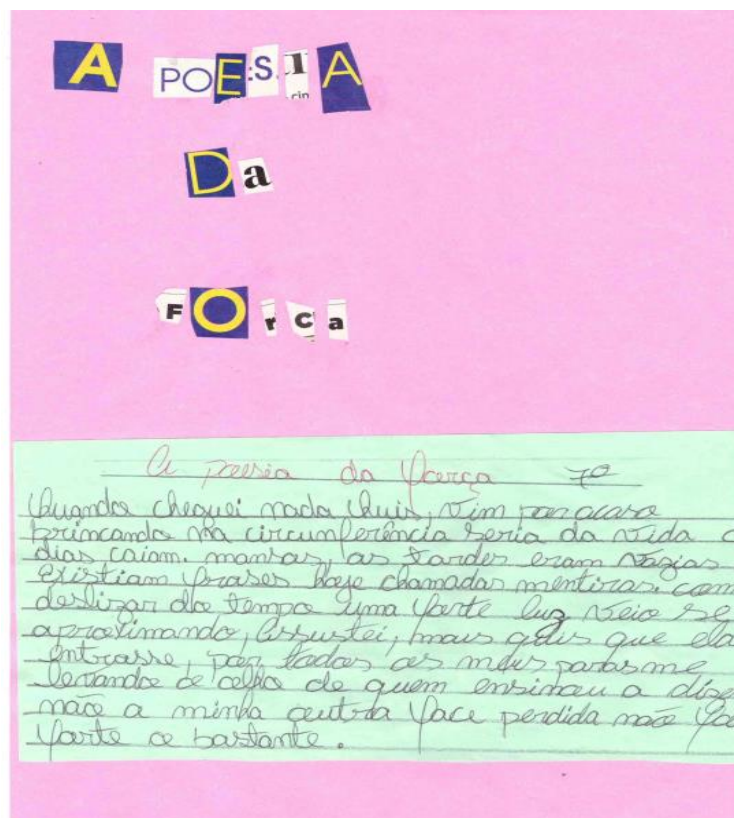 A POESIA
Da
FOrCa
A poesia da força 7º
Quando cheguei nada quis, vim por acaso
brincando na circunferência seria da vida o
dias caiam. mansos, as tardes eram vazias
Existiam frases hoje chamadas mentiras. com
deslizar do tempo uma forte luz veio se
aproximando, Assustei, mais quis que ela
entrasse, por todos os meus poros me
levando de a de quem ensinou a dize
não a minha outra face perdida não fo
forte o bastante.